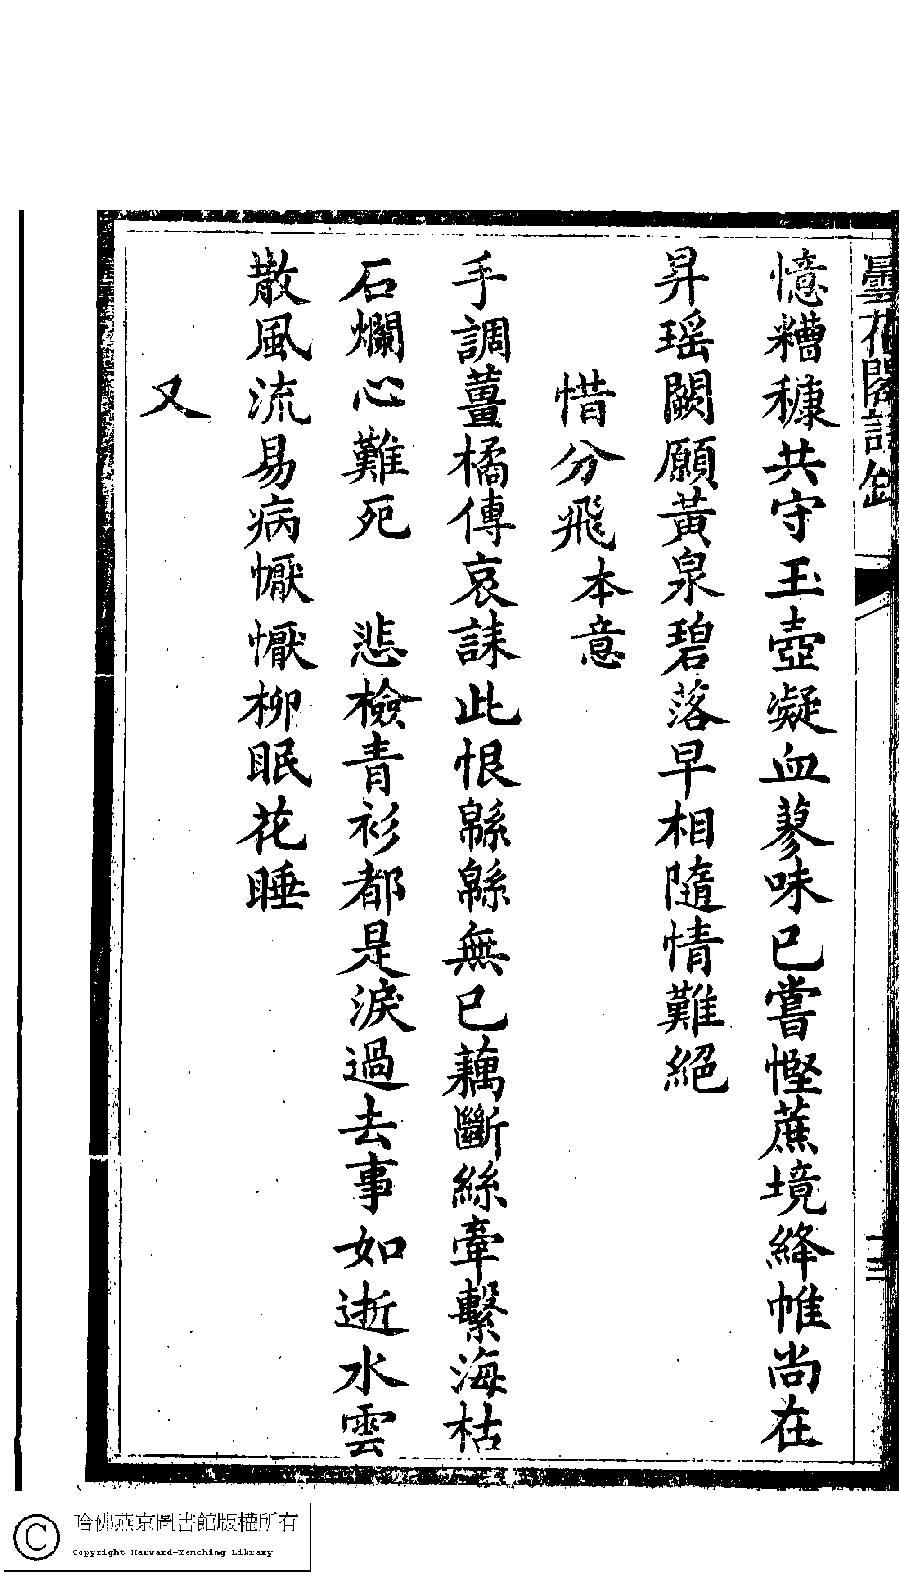 曇花閣詩鈔
十三
憶糟糠共守玉壺凝血蓼味已嘗慳蔗境絳帷尚在
昇瑶闕願黃泉碧落早相隨情難絕
惜分飛本意
手調薑橘傳哀誄此恨緜緜無已藕斷絲牽繫海枯
石爛心難死　悲檢青衫都是淚過去事如逝水雲
散風流易病懨懨柳眠花睡
又
哈佛燕京圖書館版權所有
Copyright Harvard-Yenching Library